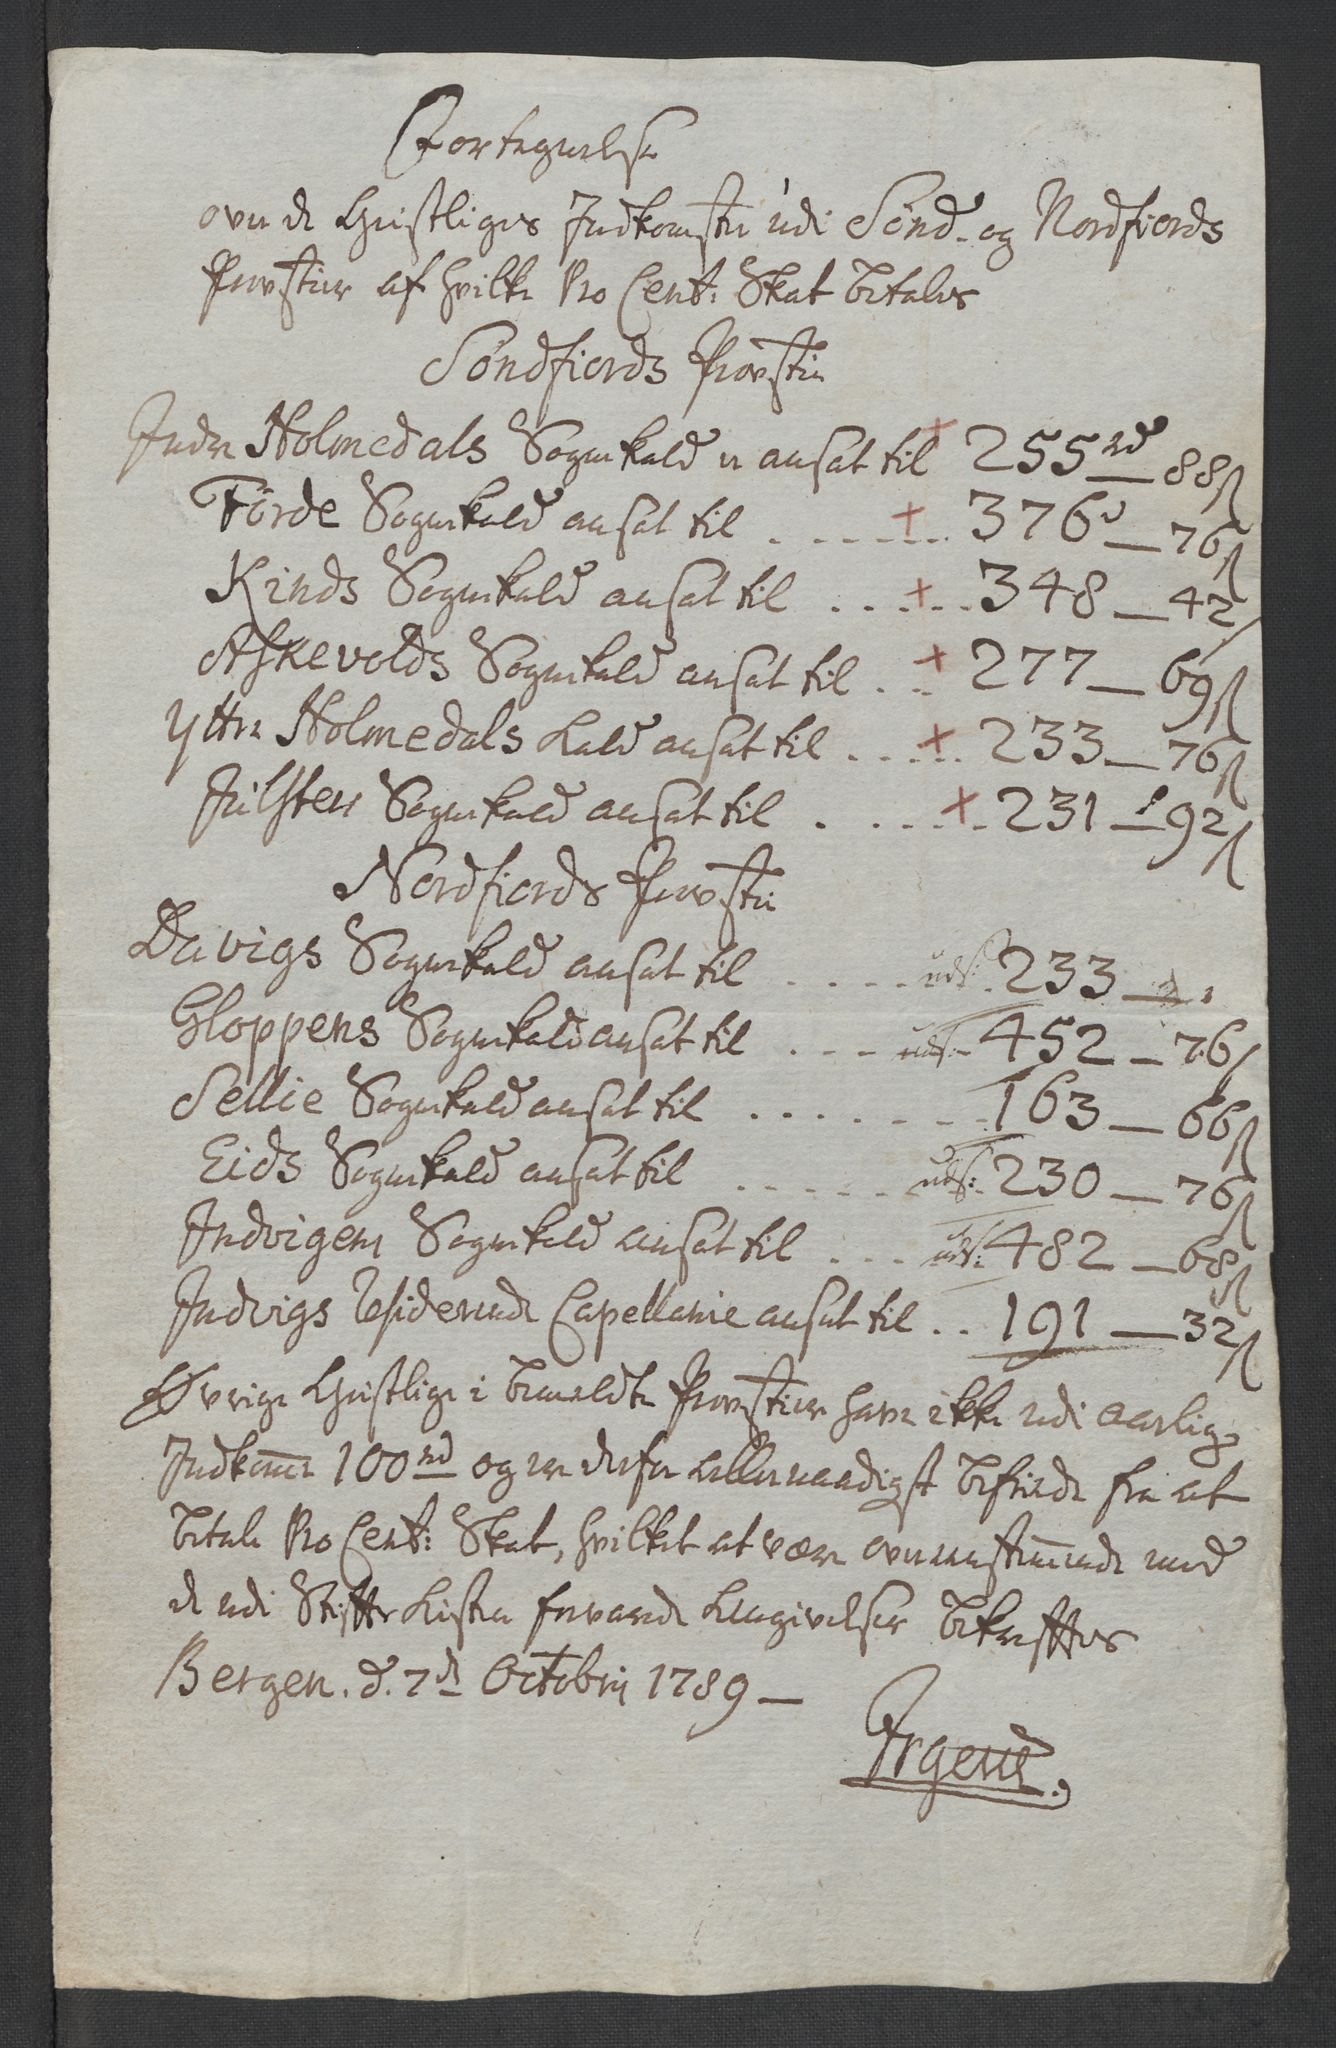 Fortegnelse
over de Geistliges Indkomster udi Sönd- og Nordfiords
Provstier af hvilke Pro Cent: Skat betales
Söndfiords Provstie
Indre Holmedals Sognekald er ansat til + 255 rd — 88 ß
Förde Sognekald ansat til . . . . . + 376 d — 76 ß
Kinds Sognekald ansat til . . . + . . 348 — 42 ß
Askevolds Sognekald ansat til . . + 277 — 69 ß
Yttre Holmedals Kald ansat til . . + . . 233 — 76 ß
Jülster Sognekald ansat til . . . + . 231 — 92 ß
Nordfiords Provstie
Davigs Sognekald ansat til . . . . . uds: 233 —
Gloppens Sognekald ansat til . . . uds: 452 — 76 ß
Sellie Sognekald ansat til . . . . . . . 163 — 66 ß
Eids Sognekald ansat til . . . . . uds: 230 — 76 ß
Indvigens Sognekald ansat til . . . uds: 482 — 68 ß
Indvigs Residerende Capellanie ansat til . . 191 — 32 ß
Øvrige Geistlige i bemeldte Provstier have ikke udi aarlig
Indkomme 100 rd og er derfor allernaadigst befriede fra at
betale Pro Cent: Skat, hvilket at være overeenstemmende med
de udi Stiftets Kiste forvarede Angivelser bekræfftes
Bergen. d. 7de Octobrij 1789 —
Irgens.